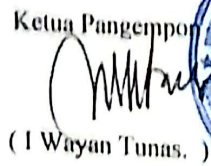 Ketua Pangempon
( I Wayan Tunas. )